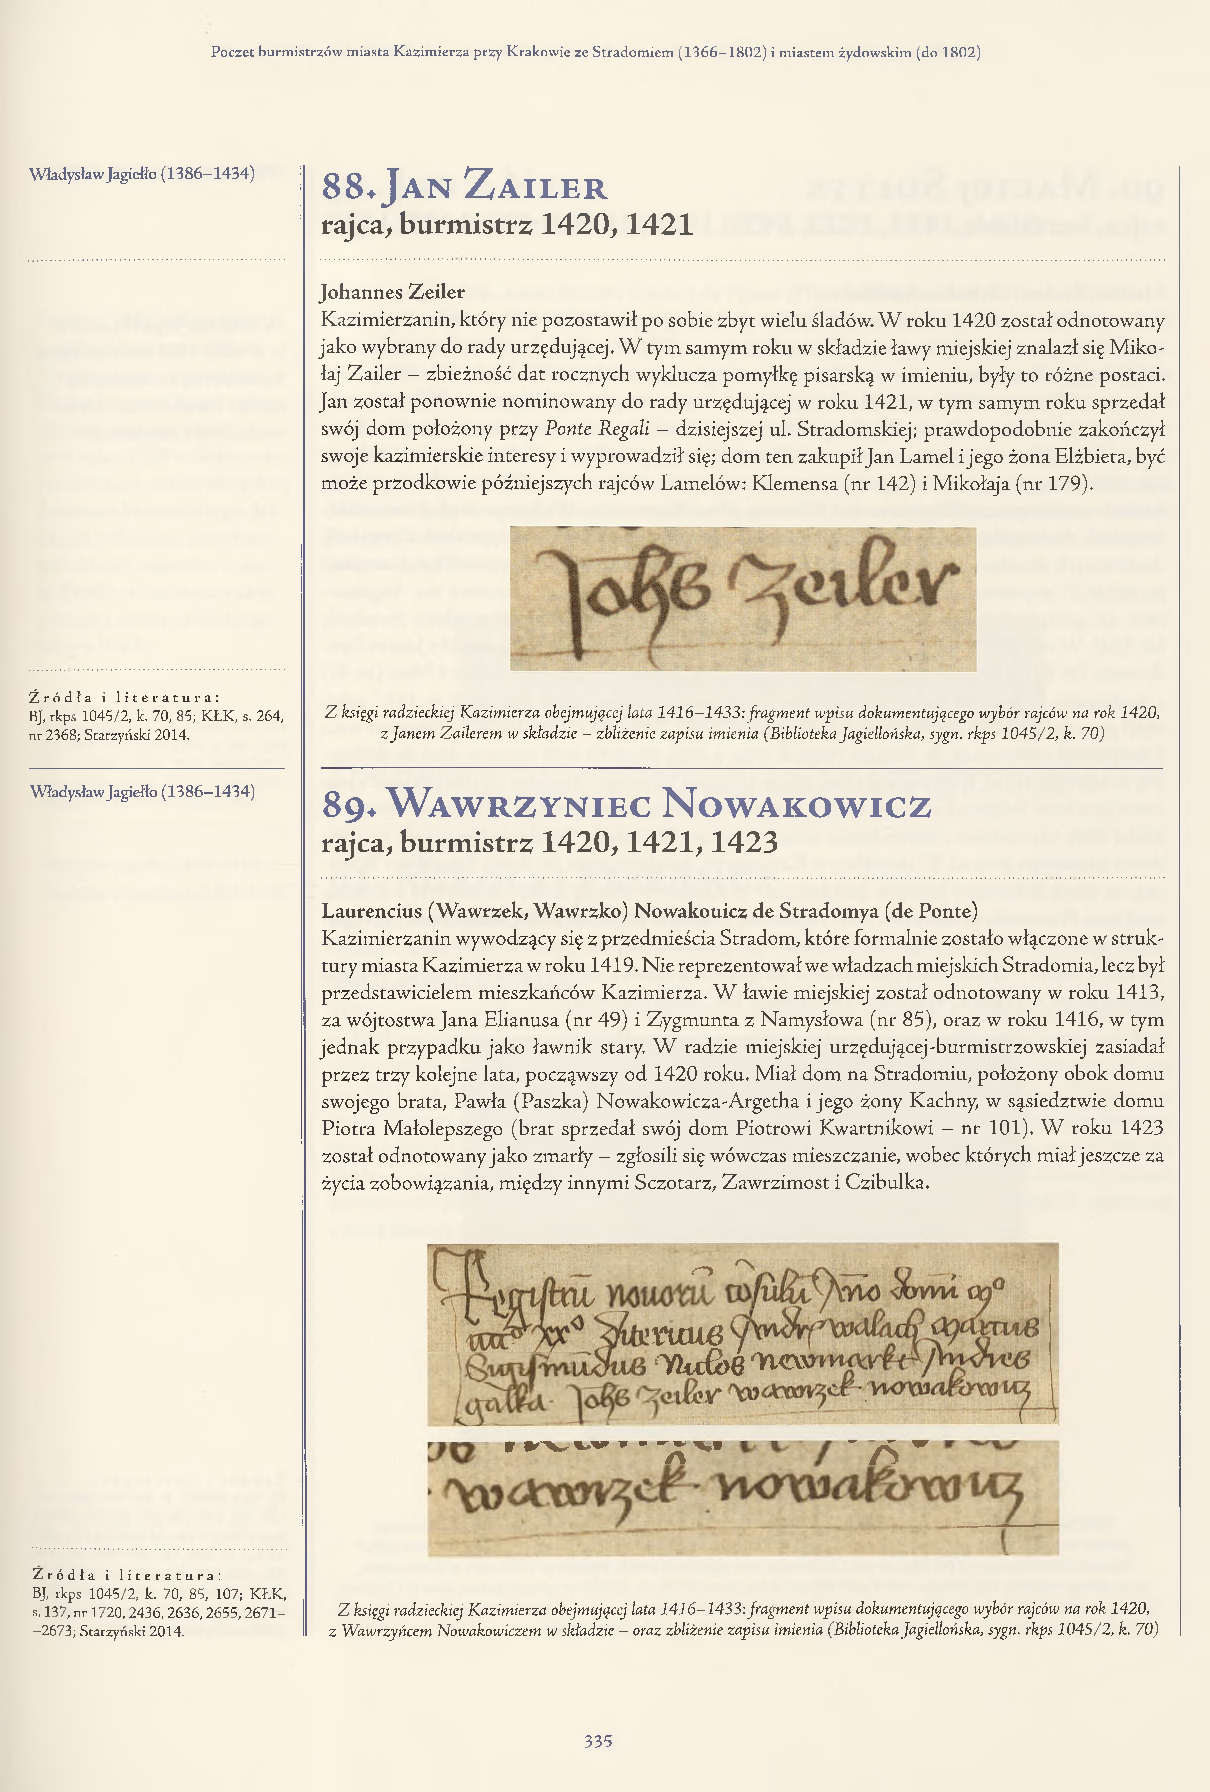 Poczet burmistrzów miasta Kazimierza przy Krakowie ze Stradomiem (1366–1802) i miastem żydowskim (do 1802)
Władysław Jagiełło (1386–1434)
88. Jan Zailer
rajca, burmistrz 1420, 1421
Johannes Zeiler
Kazimierzanin, który nie pozostawił po sobie zbyt wielu śladów. W roku 1420 został odnotowany
jako wybrany do rady urzędującej. W tym samym roku w składzie ławy miejskiej znalazł się Miko-
łaj Zailer – zbieżność dat rocznych wyklucza pomyłkę pisarską w imieniu, były to różne postaci.
Jan został ponownie nominowany do rady urzędującej w roku 1421, w tym samym roku sprzedał
swój dom położony przy Ponte Regali – dzisiejszej ul. Stradomskiej; prawdopodobnie zakończył
swoje kazimierskie interesy i wyprowadził się; dom ten zakupił Jan Lamel i jego żona Elżbieta, być
może przodkowie późniejszych rajców Lamelów: Klemensa (nr 142) i Mikołaja (nr 179).
Johes Zeiler
Źródła i literatura:
BJ, rkps 1045/2, k. 70, 85; KŁK, s. 264,
nr 2368; Starzyński 2014.
Z księgi radzieckiej Kazimierza obejmującej lata 1416–1433: fragment wpisu dokumentującego wybór rajców na rok 1420,
z Janem Zailerem w składzie – zbliżenie zapisu imienia (Biblioteka Jagiellońska, sygn. rkps 1045/2, k. 70)
Władysław Jagiełło (1386–1434)
89. Wawrzyniec Nowakowicz
rajca, burmistrz 1420, 1421, 1423
Laurencius (Wawrzek, Wawrzko) Nowakouicz de Stradomya (de Ponte)
Kazimierzanin wywodzący się z przedmieścia Stradom, które formalnie zostało włączone w struk-
tury miasta Kazimierza w roku 1419. Nie reprezentował we władzach miejskich Stradomia, lecz był
przedstawicielem mieszkańców Kazimierza. W ławie miejskiej został odnotowany w roku 1413,
za wójtostwa Jana Elianusa (nr 49) i Zygmunta z Namysłowa (nr 85), oraz w roku 1416, w tym
jednak przypadku jako ławnik stary. W radzie miejskiej urzędującej-burmistrzowskiej zasiadał
przez trzy kolejne lata, począwszy od 1420 roku. Miał dom na Stradomiu, położony obok domu
swojego brata, Pawła (Paszka) Nowakowicza-Argetha i jego żony Kachny, w sąsiedztwie domu
Piotra Małolepszego (brat sprzedał swój dom Piotrowi Kwartnikowi – nr 101). W roku 1423
został odnotowany jako zmarły – zgłosili się wówczas mieszczanie, wobec których miał jeszcze za
życia zobowiązania, między innymi Sczotarz, Zawrzimost i Czibulka.
Johes Zeiler wawrzek nowakowicz
wawrzek nowakowicz
Źródła i literatura:
BJ, rkps 1045/2, k. 70, 85, 107; KŁK,
s. 137, nr 1720, 2436, 2636, 2655, 2671–
–2673; Starzyński 2014.
Z księgi radzieckiej Kazimierza obejmującej lata 1416–1433: fragment wpisu dokumentującego wybór rajców na rok 1420,
z Wawrzyńcem Nowakowiczem w składzie – oraz zbliżenie zapisu imienia (Biblioteka Jagiellońska, sygn. rkps 1045/2, k. 70)
335